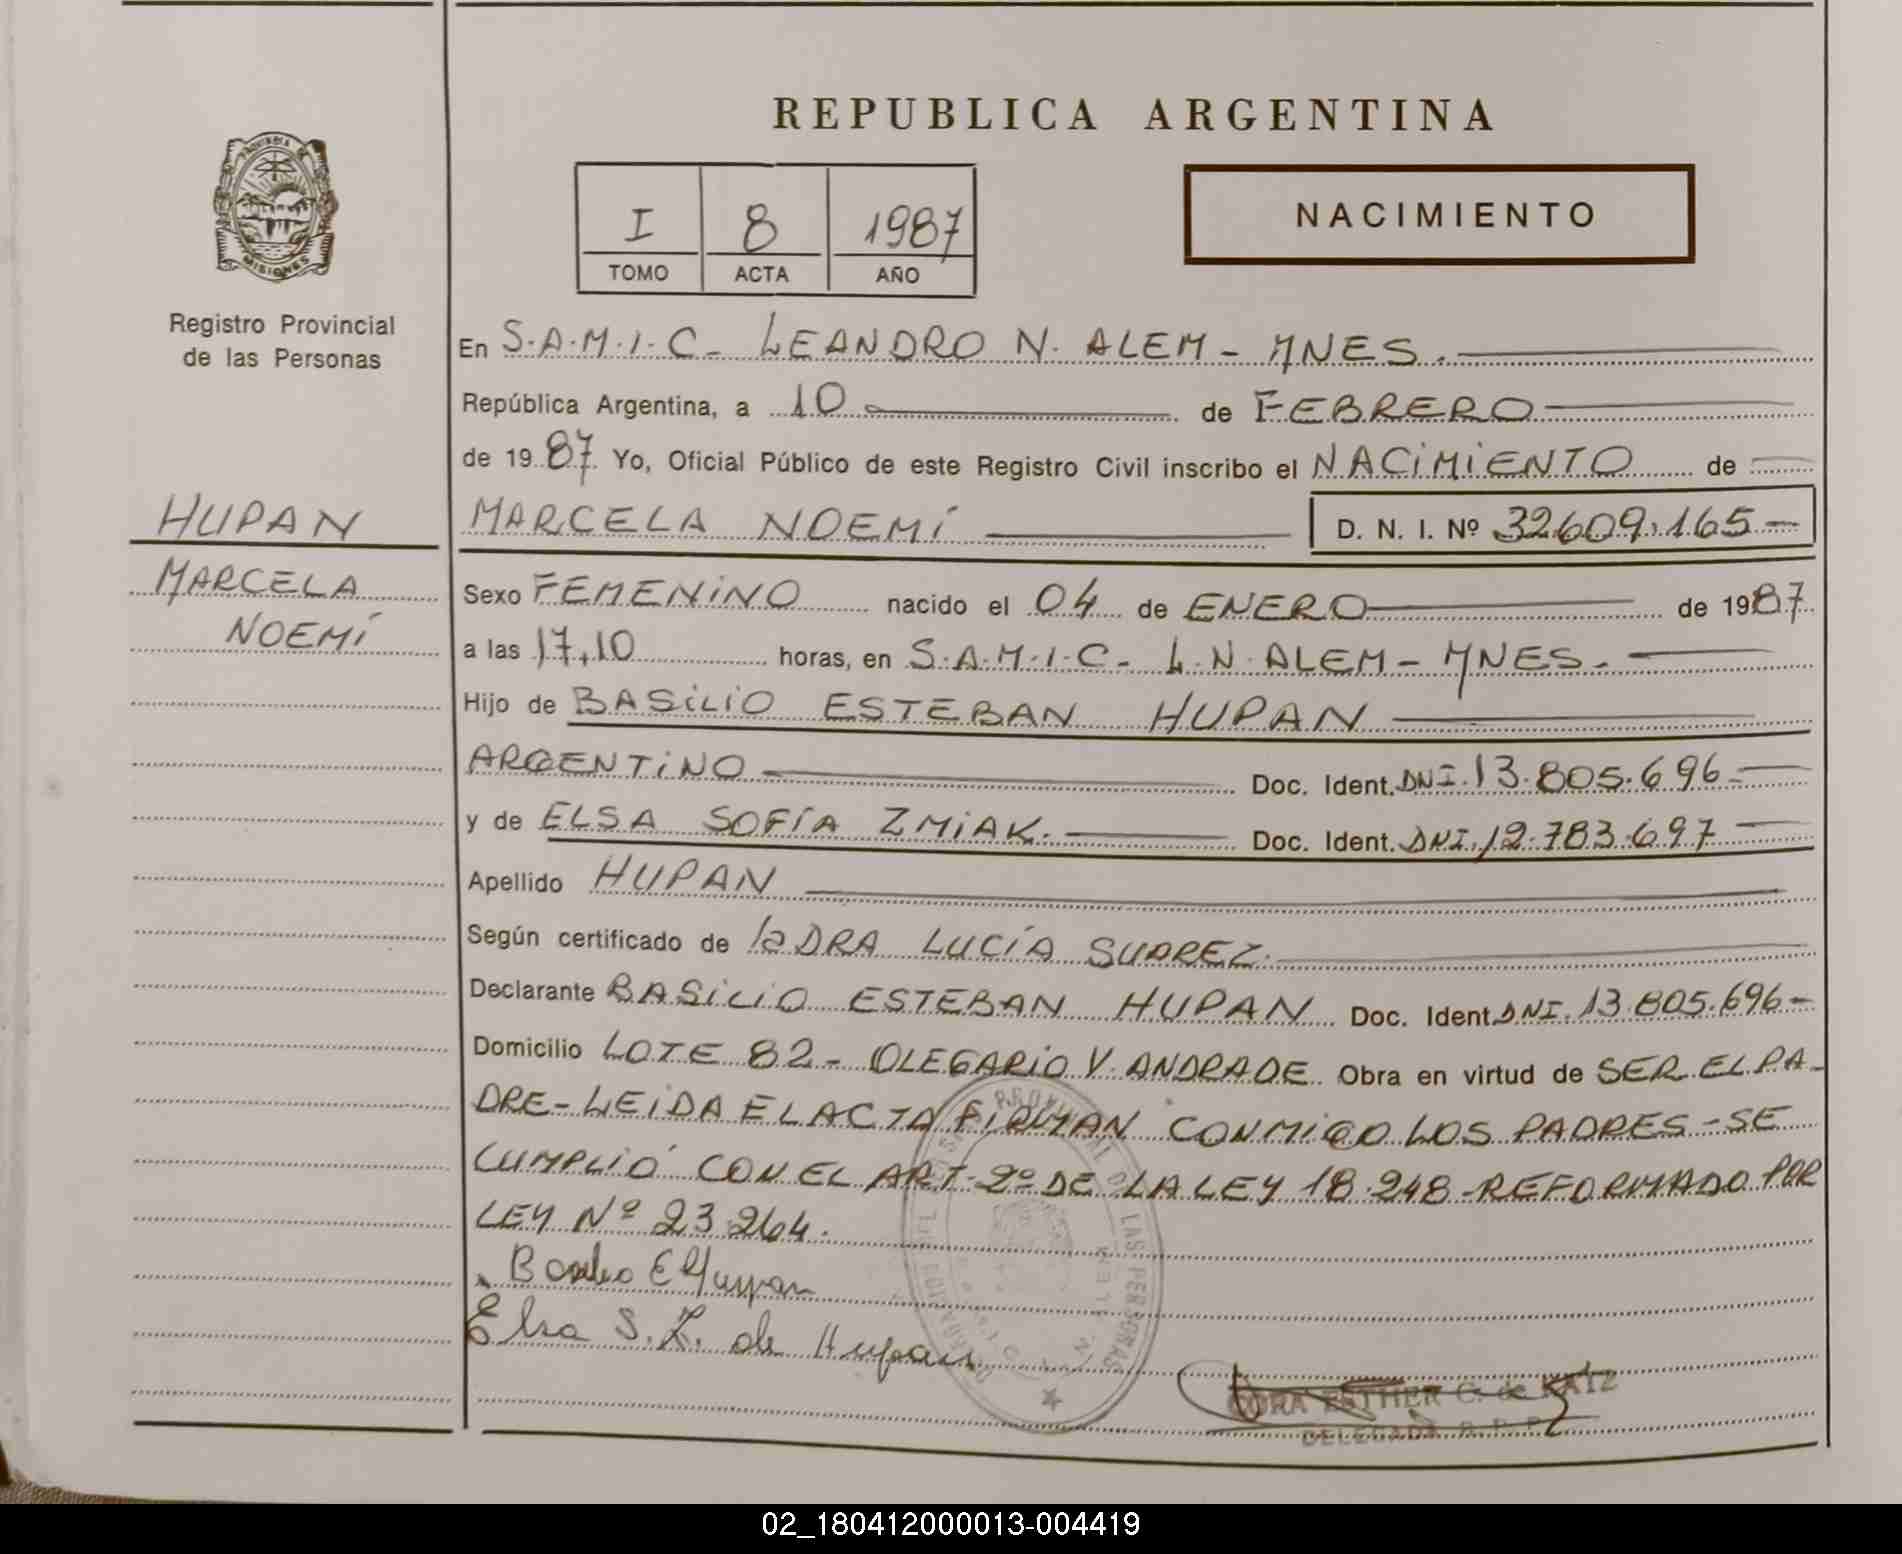 REPUBLICA ARGENTINA
PROVINCIA DE
MISIONES
Registro Provincial
de las Personas
I 8 1987
TOMO ACTA AÑO
NACIMIENTO
En S.A.M.I.C. LEANDRO N. ALEM - MNES.
República Argentina, a 10 de FEBRERO
de 1987 Yo, Oficial Público de este Registro Civil inscribo el NACIMIENTO de
HUPAN
MARCELA NOEMÍ D. N. I. Nº 32609.165-
MARCELA
NOEMÍ
Sexo FEMENINO nacido el 04 de ENERO de 1987
a las 17,10 horas, en S.A.M.I.C. L.N. ALEM - MNES.
Hijo de BASILIO ESTEBAN HUPAN
ARGENTINO Doc. Ident. DNI. 13.805.696-
y de ELSA SOFÍA ZMIAK. Doc. Ident. DNI. 12.783.697
Apellido HUPAN
Según certificado de la DRA LUCÍA SUAREZ.
Declarante BASILIO ESTEBAN HUPAN Doc. Ident DNI. 13.805.696-
Domicilio LOTE 82 - OLEGARIO V. ANDRADE Obra en virtud de SER EL PA-
DRE - LEIDA EL ACTA FIRMAN CONMIGO LOS PADRES - SE
CUMPLIÓ CON EL ART. 2º DE LA LEY 18.248 REFORMADO POR
LEY Nº 23.264.
Elsa S. Z. de Hupan
PROVINCIAL DE LAS PERSONAS
N. ALEM
ESTHER C. de KATZ
DELEGADA R. P. P.
02_180412000013-004419